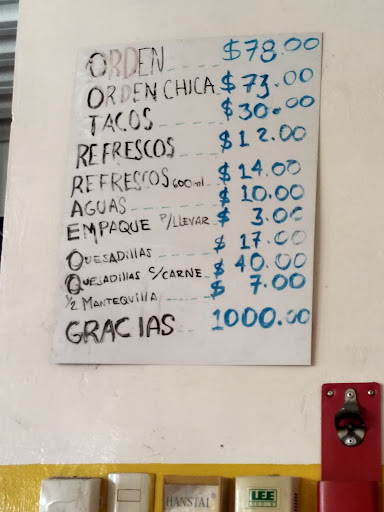 ORDEN $78.00
ORDEN CHICA $73.00
TACOS $30.00
REFRESCOS $12.00
REFRESCOS 600ml $14.00
AGUAS $10.00
EMPAQUE P/LLEVAR $3.00
QUESADILLAS $17.00
QUESADILLAS C/CARNE $40.00
½ MANTEQUILLA $7.00
GRACIAS 1000.00
HANSTAL
LEE